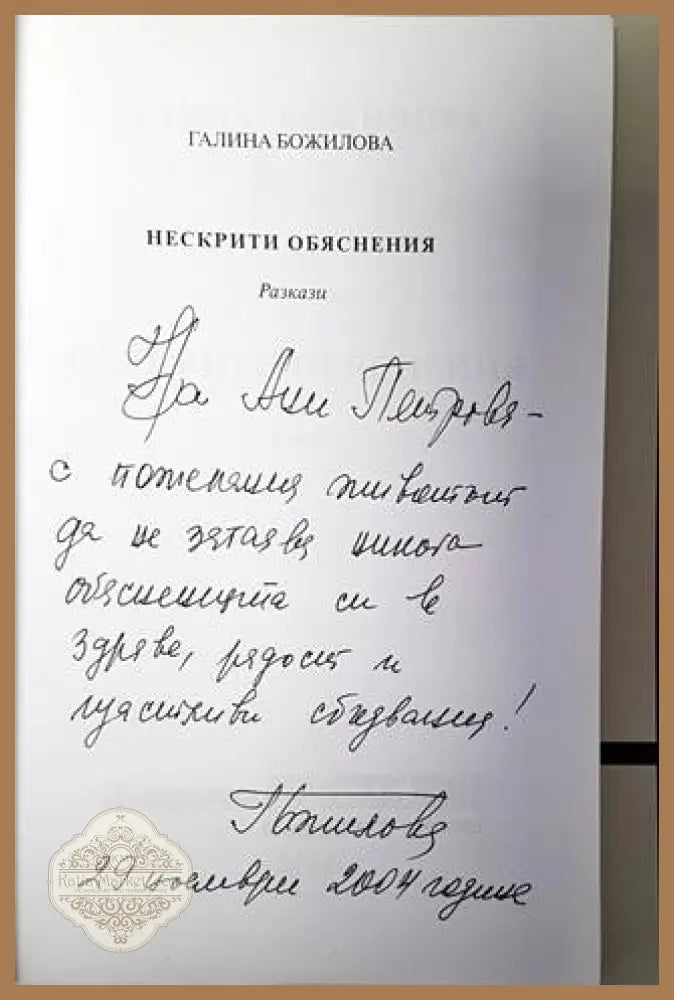 ГАЛИНА БОЖИЛОВА
НЕСКРИТИ ОБЯСНЕНИЯ
Разкази
На Ани Петрова –
с пожелания животът
да не затаява никога
обясненията си в
здраве, радост и
щастливи сбъдвания!
Божилова
29 ноември 2004 година